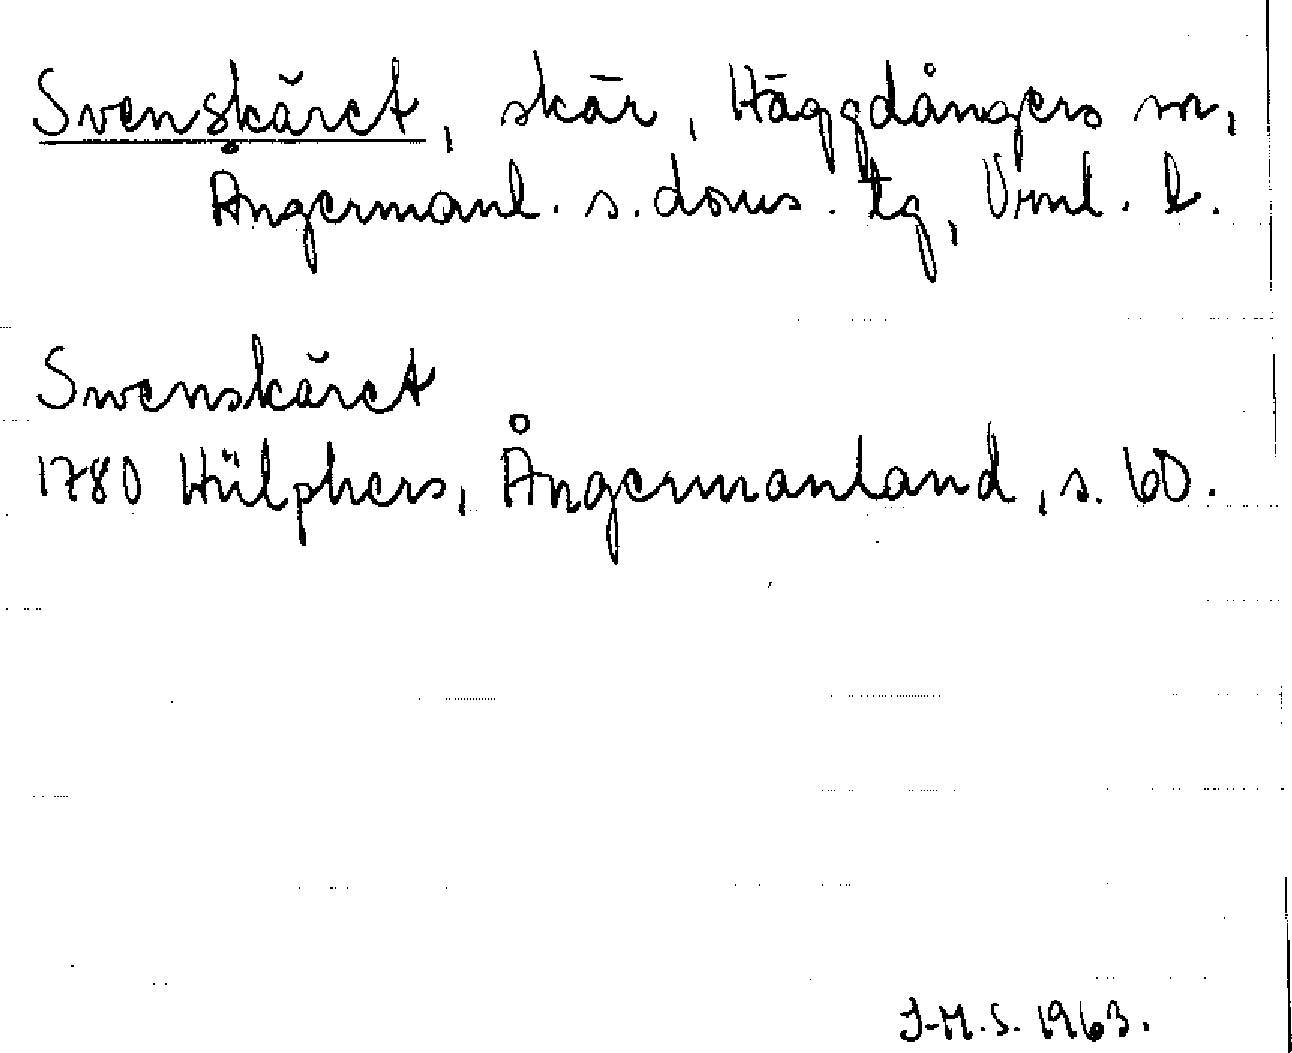 Svenskäret, skär, Häggdångers sn,
Ångermanl. s. doms. tg, Vrnl. l.
Swenskäret
1780 Hülphers, Ångermanland, s. 60.
J-M.S. 1963.